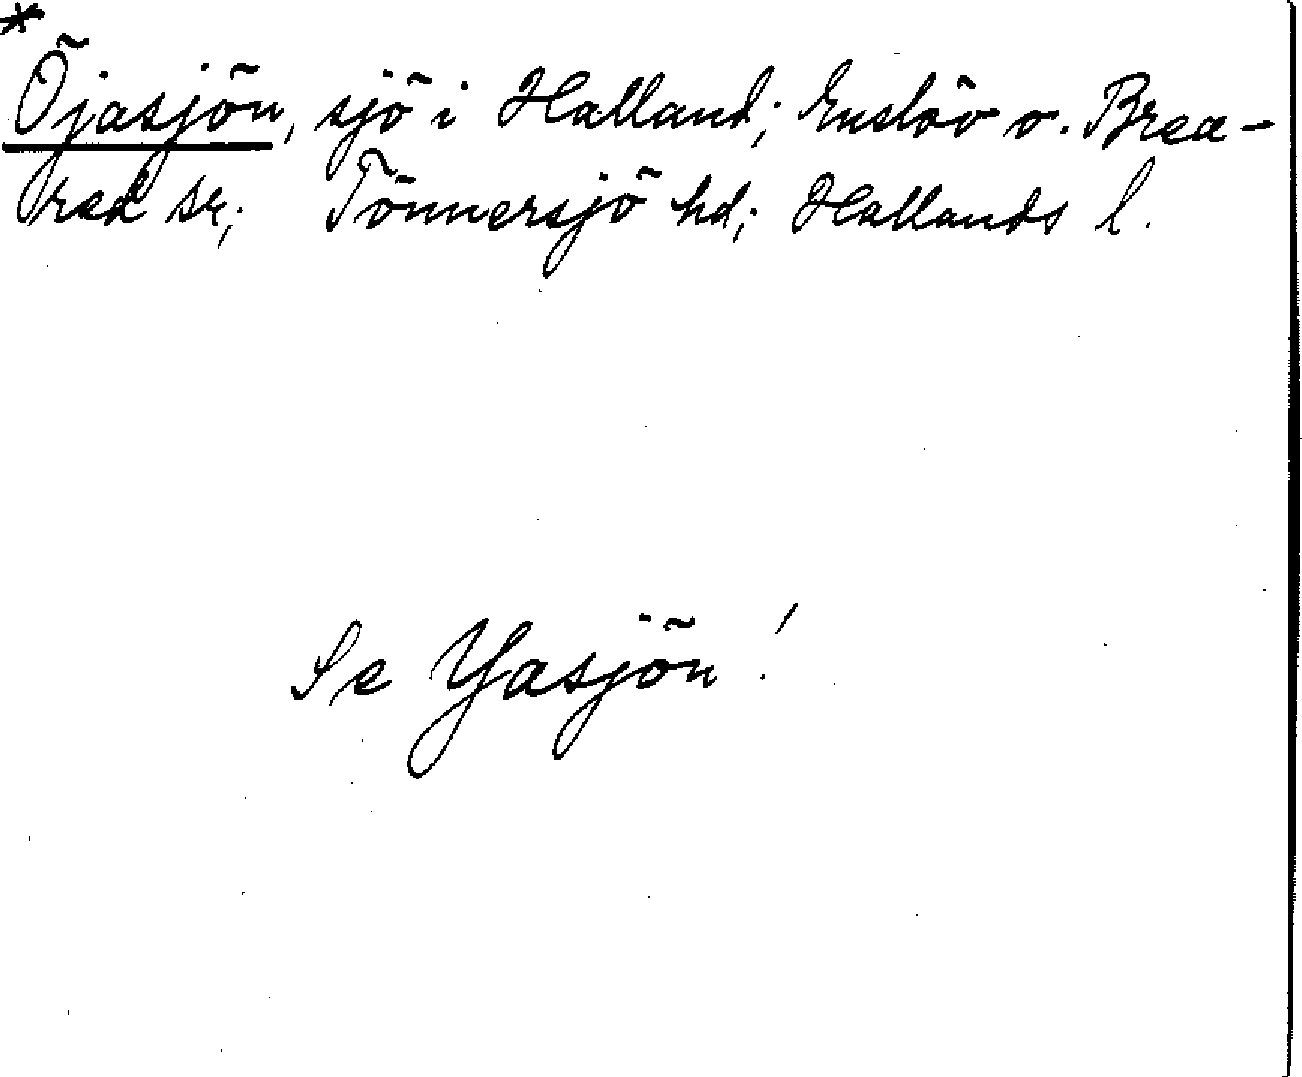 *
Öjasjön, sjö i Halland; Enslöv o. Brea-
red sr; Tönnersjö hd; Hallands l.
Se Yasjön!